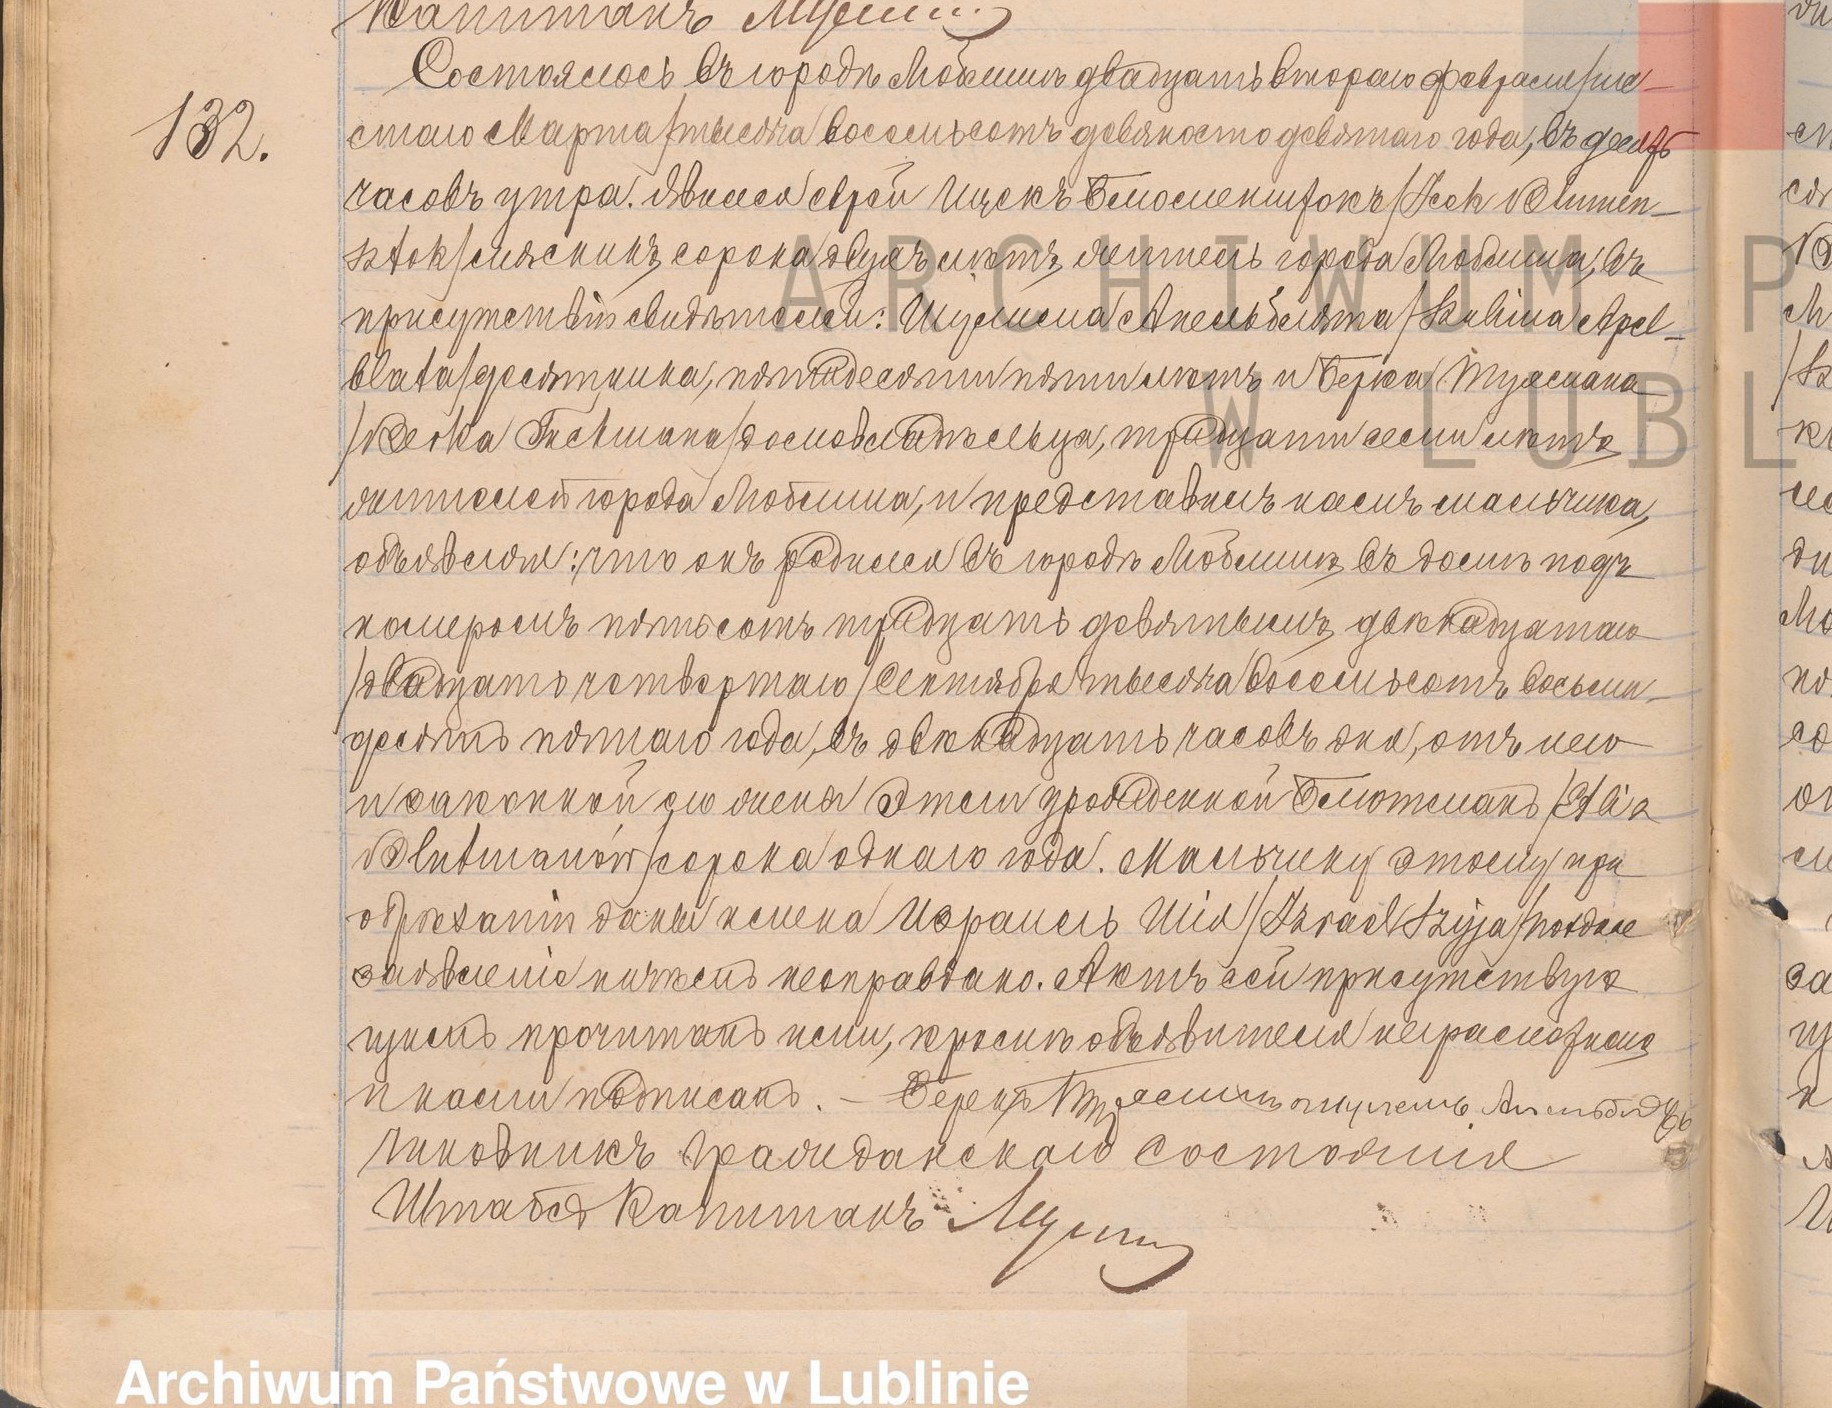 Капитанъ
132.
Состоялось въ городѣ Люблинѣ двадцать втораго Февраля/ше-
стаго Марта/тысяча восемьсотъ девяносто девятаго года, въ десять
часовъ утра. Явился еврей Ицекъ Блюменштокъ/Icek Blumen-
sztok/мясникъ, сорока двухъ лѣтъ, житель города Люблина, въ
присутствіи свидѣтелей: Шулима Апельблята/Szulima Apel-
blata/десятника, пятидесяти пяти лѣтъ и Берка Тухмана
/Berka Tuchmana/домовладѣльца, тридцати семи лѣтъ
жителей города Люблина, и представилъ намъ мальчика,
объявляя: что онъ родился въ городѣ Люблинѣ, въ домѣ подъ
номеромъ пятьсотъ тридцать девятымъ, двѣнадцатаго
/двадцать четвертаго/Сентября тысяча восемьсотъ восемь-
десятъ пятаго года, въ двѣнадцать часовъ дня, отъ него
и законной его жены Этли урожденной Блютманъ/Etli z
Blutmanów/сорока одного года. Мальчику этому при
обрѣзаніи даны имена Израиль Шія/Izrael Szyja/позднее
заявленіе ничѣмъ неоправдано. Актъ сей присутствую
щимъ прочитанъ ими, кромѣ объявителя неграмотнаго
и нами подписанъ. — Берекъ Тухманъ Шулимъ Апельблятъ
Чиновникъ Гражданскаго Состоянія
Штабсъ Капитанъ
ARCHIWUM P
W LUBL
Archiwum Państwowe w Lublinie